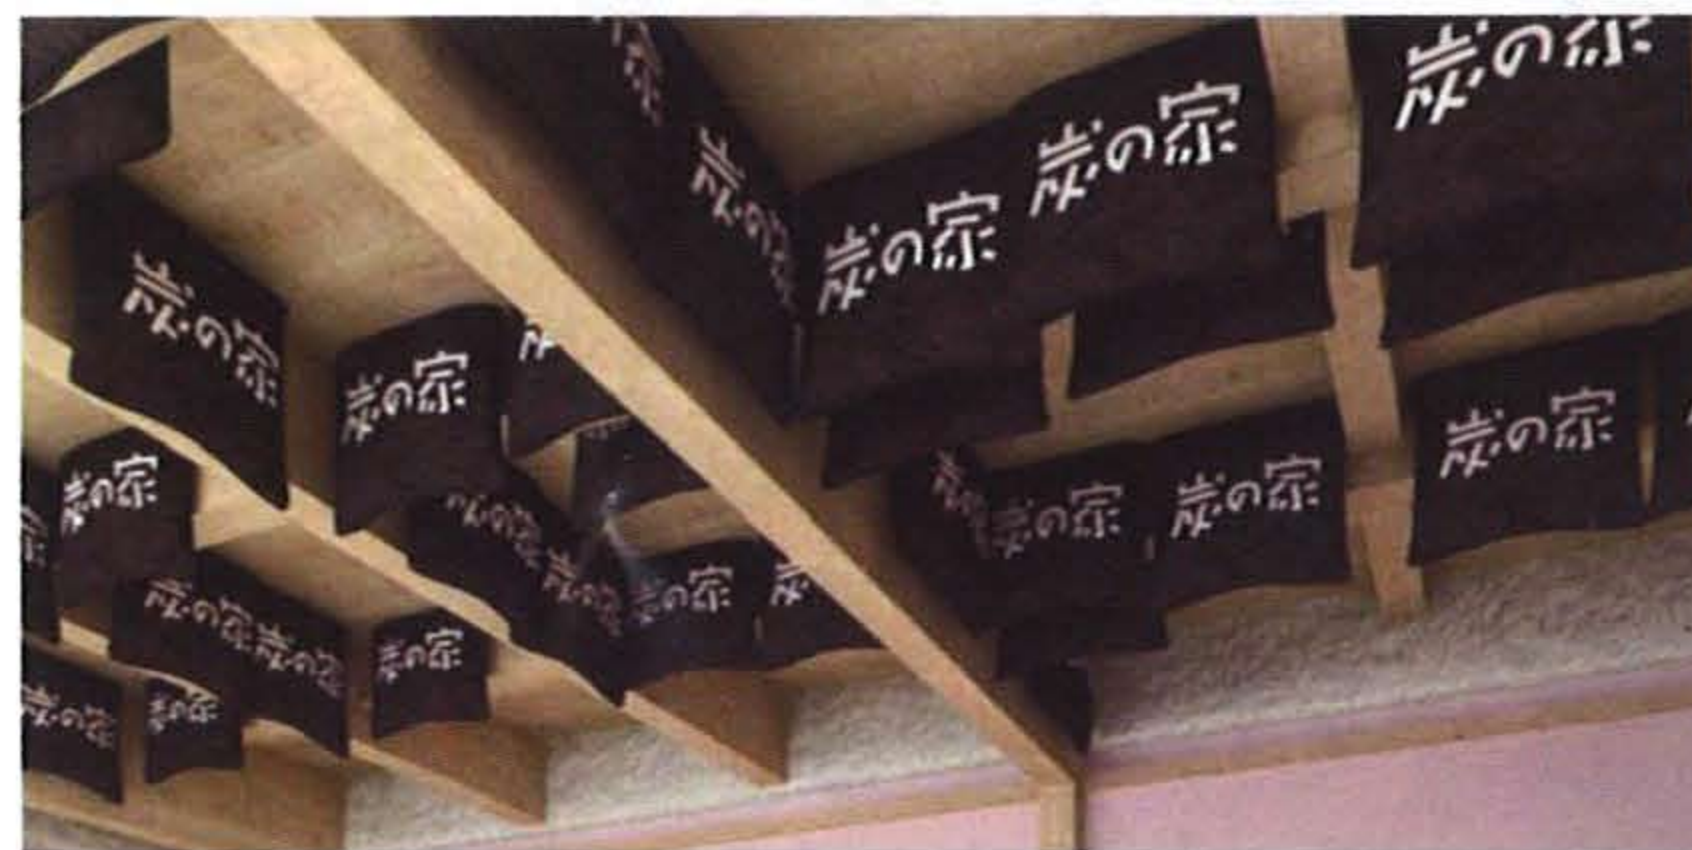 炭の家
炭の家
炭の家
炭の家
炭の家
炭の家
炭の家
炭の家
炭の家
炭の家
炭の家
炭の家
炭の家
炭の家
炭の家
炭の家
炭の家